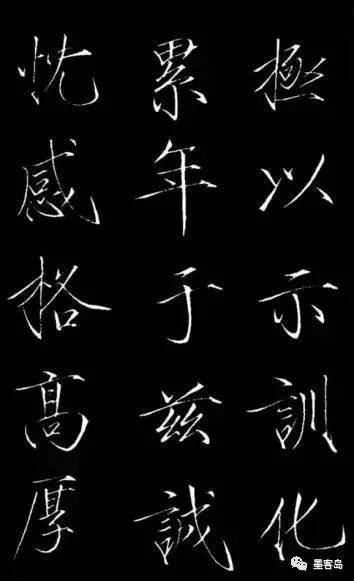 極以示訓化
累年于兹誠
忱感格髙厚
墨客岛